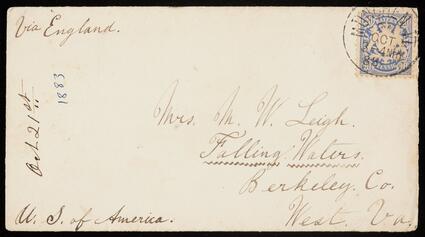 Via England.
MÜNCHEN
OCT
Oct. 21st
1883
Mrs. M. W. Leigh.
Falling Waters.
Berkeley. Co.
West. Va.
U. S. of America.